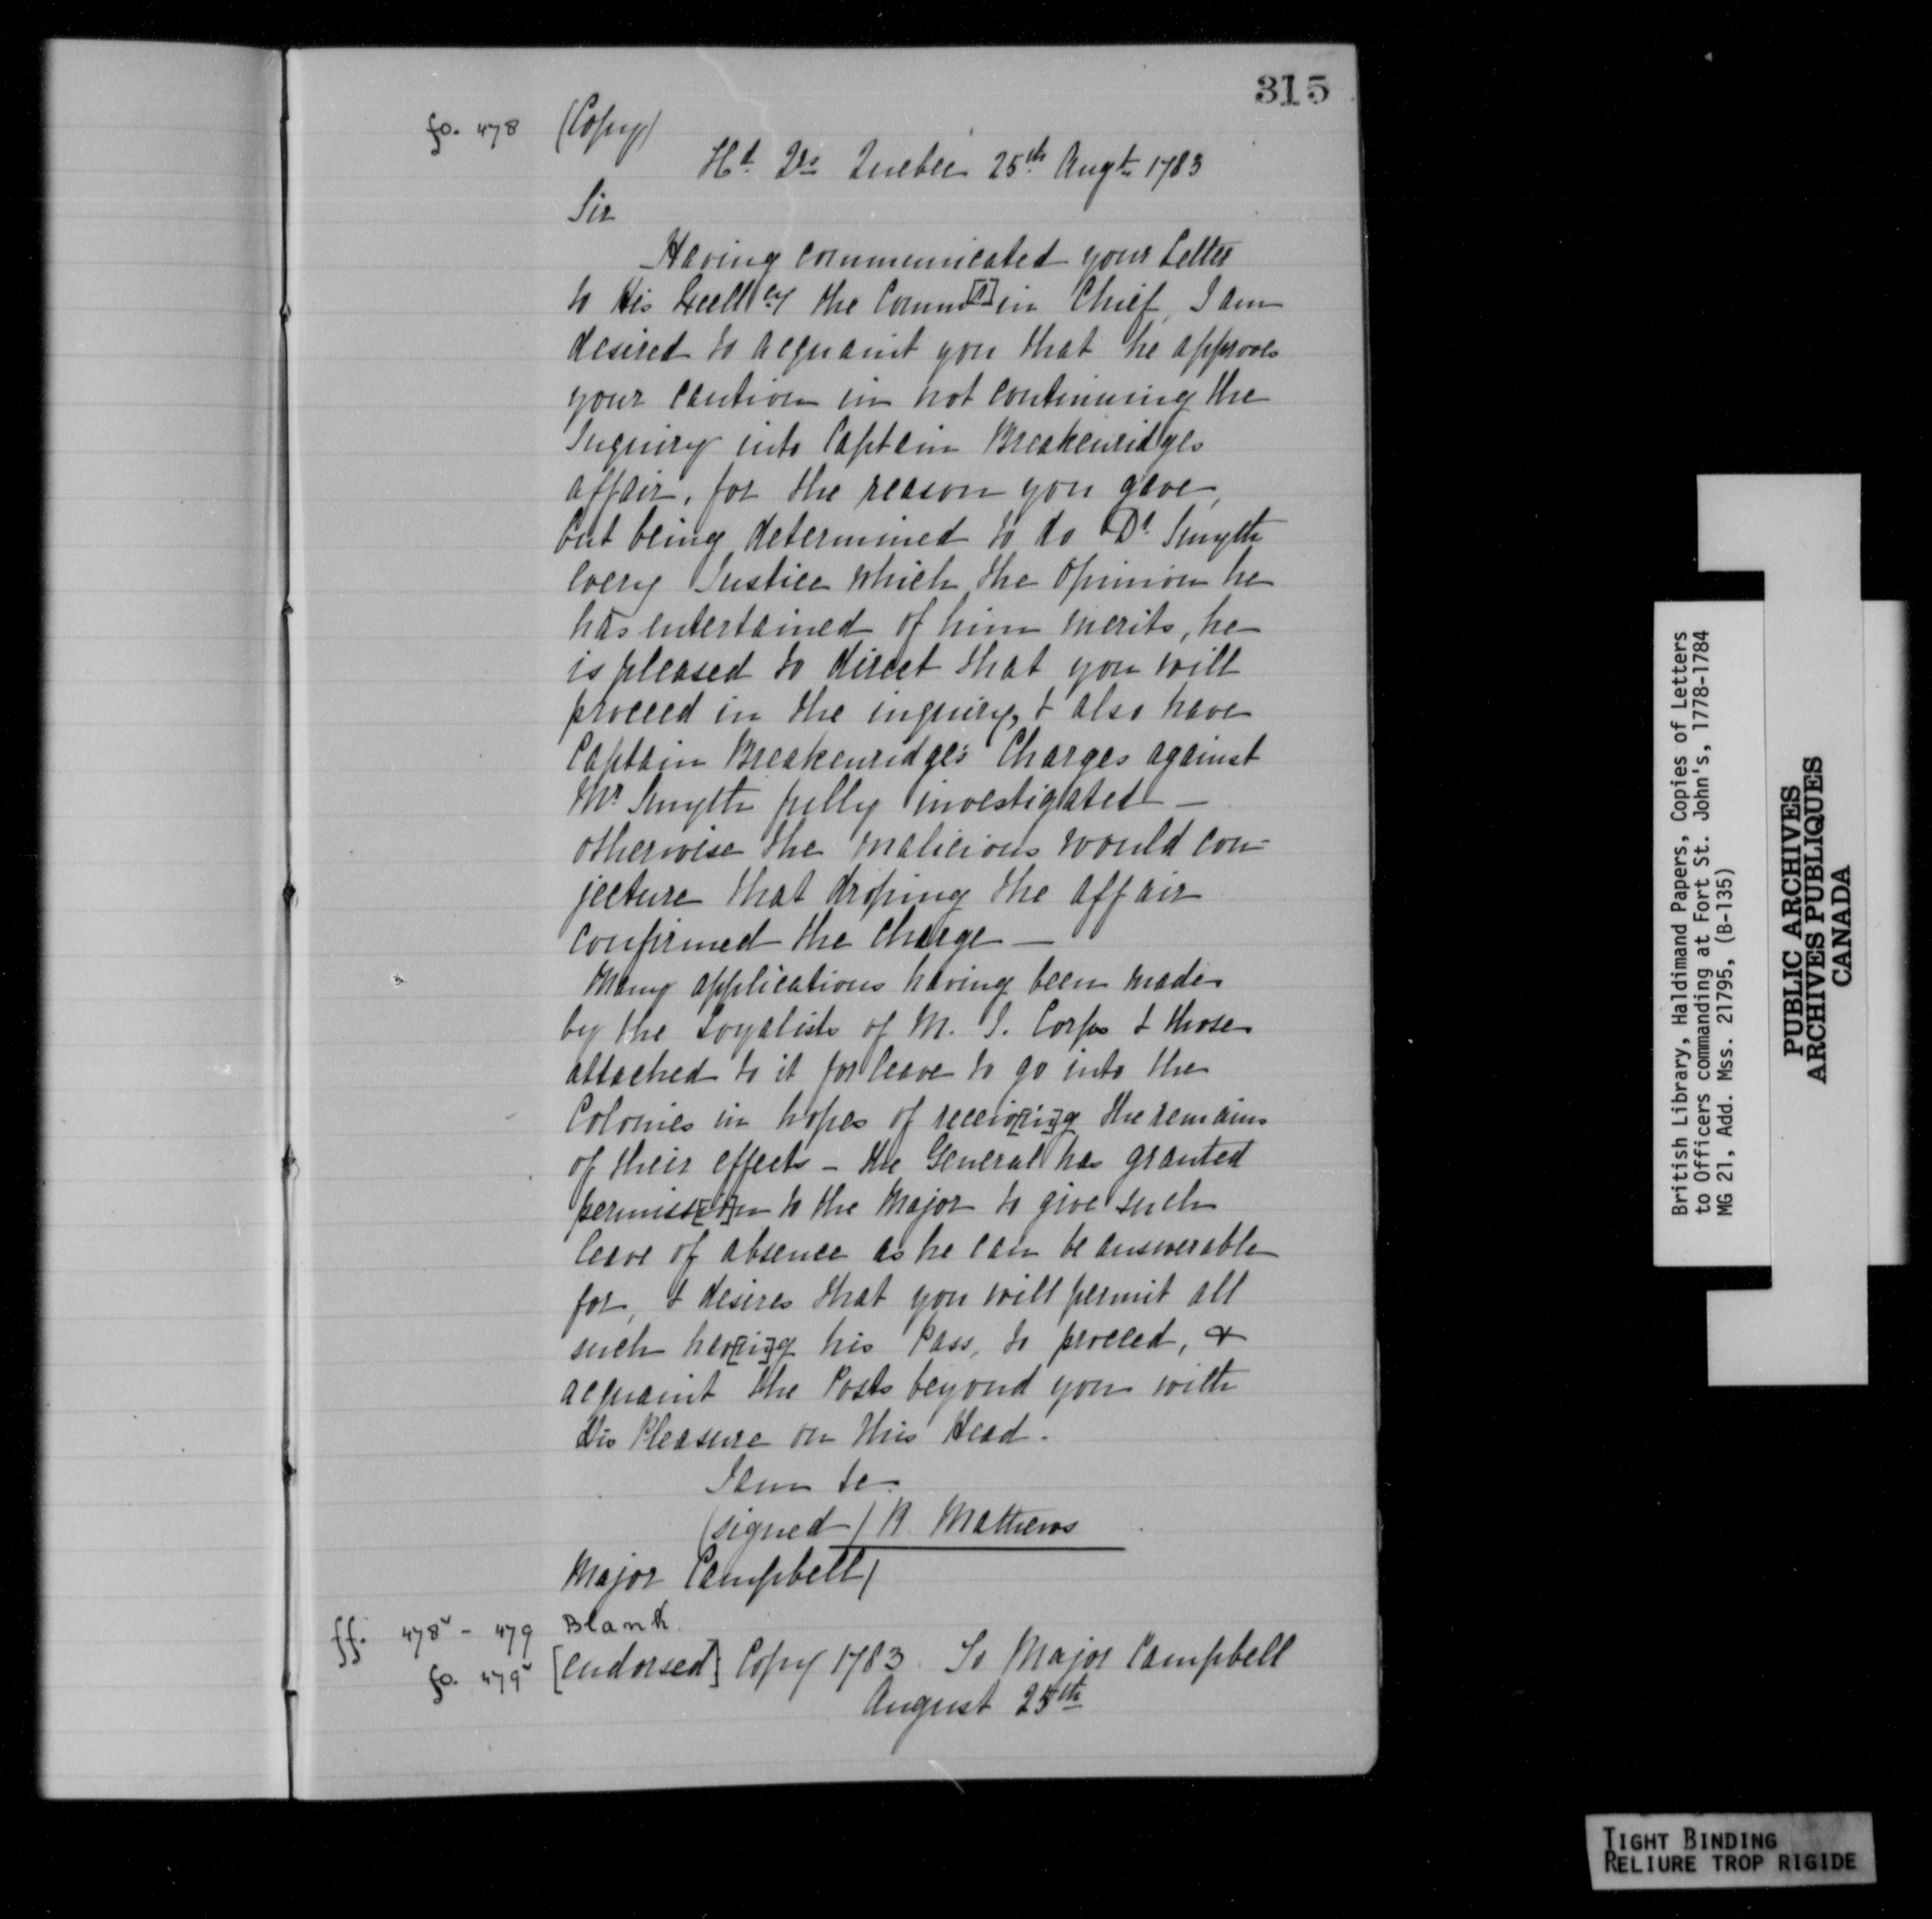 315
fo. 478 (Copy)
Hd Qrs Quebec 25th Augt 1783
Sir
Having communicated your Letter
to His Excellcy the Comm[r] in Chief, I am
desired to acquaint you that he approves
your caution in not continuing the
Inquiry into Captain Breakenridges
affair, for the reason you gave,
but being determined to do Dr Smyth
every Justice which the opinion he
has entertained of him merits, he
is pleased to direct that you will
proceed in the inquiry, & also have
Captain Breakenridge's Charges against
Mr Smyth fully investigated —
otherwise the malicious would con-
jecture that droping the affair
confirmed the charge —
Many applications having been made
by the Loyalists of M. J. Corps & those
attached to it for leave to go into the
Colonies in hopes of receiv[in]g the remains
of their effects – the General has granted
permiss[io]n to the Major to give such
leave of absence as he can be answerable
for, & desires that you will permit all
such hav[in]g his Pass, to proceed, &
acquaint the Posts beyond you with
His Pleasure on this Head.
I am &c
(signed) R Mathews
Major Campbell)
ff. 478v - 479 Blank.
fo. 479v [endorsed] Copy 1783 To Major Campbell
August 25th
British Library, Haldimand Papers, Copies of Letters
to Officers commanding at Fort St. John's, 1778-1784
MG 21, Add. Mss. 21795, (B-135)
PUBLIC ARCHIVES
ARCHIVES PUBLIQUES
CANADA
TIGHT BINDING
RELIURE TROP RIGIDE